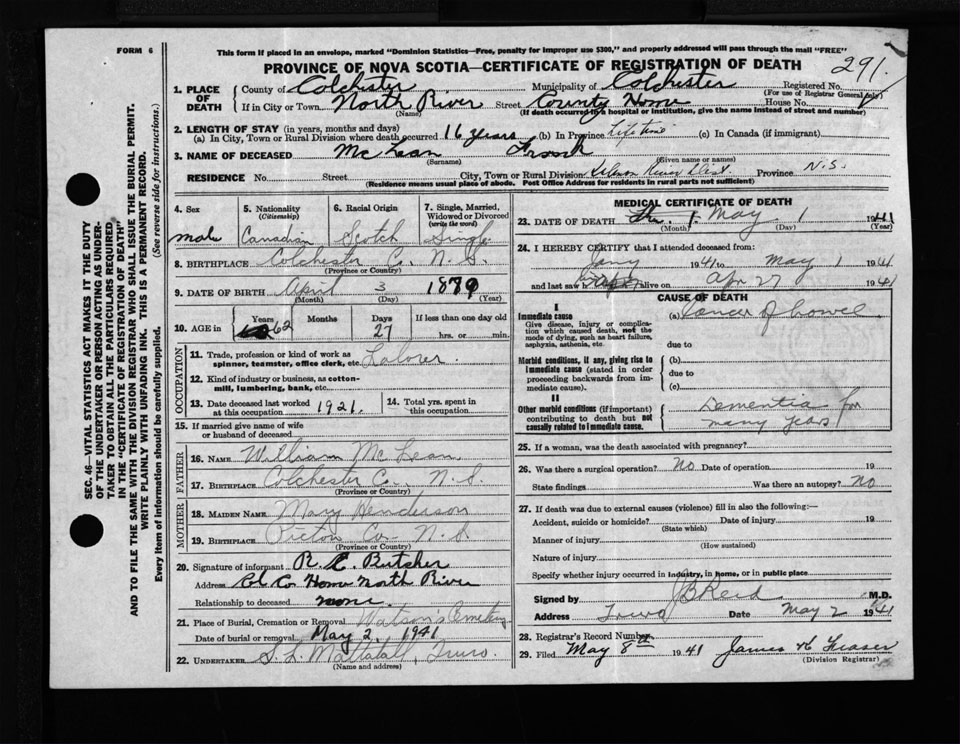 FORM 6
This form if placed in an envelope, marked "Dominion Statistics—Free, penalty for improper use $300," and properly addressed will pass through the mail "FREE"
PROVINCE OF NOVA SCOTIA—CERTIFICATE OF REGISTRATION OF DEATH
291.
SEC. 46—VITAL STATISTICS ACT MAKES IT THE DUTY
OF THE UNDERTAKER OR PERSON ACTING AS UNDER-
TAKER TO OBTAIN ALL THE PARTICULARS REQUIRED
IN THE "CERTIFICATE OF REGISTRATION OF DEATH"
AND TO FILE THE SAME WITH THE DIVISION REGISTRAR WHO SHALL ISSUE THE BURIAL PERMIT.
WRITE PLAINLY WITH UNFADING INK. THIS IS A PERMANENT RECORD.
Every item of information should be carefully supplied. (See reverse side for instructions.)
1. PLACE OF DEATH
County of Colchester Municipality of Colchester Registered No.
(For use of Registrar General only)
If in City or Town North River Street County Home House No.
(Name) (If death occurred in a hospital or institution, give the name instead of street and number)
2. LENGTH OF STAY (in years, months and days)
(a) In City, Town or Rural Division where death occurred 16 years (b) In Province Life time (c) In Canada (if immigrant)
3. NAME OF DECEASED McLean Frank
(Surname) (Given name or names)
RESIDENCE No. Street City, Town or Rural Division River Dist. Province N.S.
(Residence means usual place of abode. Post Office Address for residents in rural parts not sufficient)
4. Sex
male
5. Nationality (Citizenship)
Canadian
6. Racial Origin
Scotch
7. Single, Married, Widowed or Divorced (write the word)
Single
8. BIRTHPLACE Colchester Co. N.S.
(Province or Country)
9. DATE OF BIRTH April 3 1879
(Month) (Day) (Year)
10. AGE in Years Months Days If less than one day old
62 27 hrs. or min.
OCCUPATION
11. Trade, profession or kind of work as spinner, teamster, office clerk, etc. Laborer.
12. Kind of industry or business, as cotton-mill, lumbering, bank, etc.
13. Date deceased last worked at this occupation 1921.
14. Total yrs. spent in this occupation
15. If married give name of wife or husband of deceased
FATHER
16. NAME William McLean
17. BIRTHPLACE Colchester Co., N.S.
(Province or Country)
MOTHER
18. MAIDEN NAME Mary Henderson
19. BIRTHPLACE Pictou Co. N.S.
(Province or Country)
20. Signature of informant R. E. Butcher
Address Col Co Home North River
Relationship to deceased none.
21. Place of Burial, Cremation or Removal Watson's Cemetery
Date of burial or removal May 2, 1941
22. UNDERTAKER S. L. Mattatall, Truro.
(Name and address)
MEDICAL CERTIFICATE OF DEATH
23. DATE OF DEATH May 1 1941
(Month) (Day) (Year)
24. I HEREBY CERTIFY that I attended deceased from:
Jany 1941 to May 1 1941
and last saw h alive on Apr 27 1941
CAUSE OF DEATH
I
Immediate cause
Give disease, injury or complication which caused death, not the mode of dying, such as heart failure, asphyxia, asthenia, etc.
(a) Cancer of bowel
due to
Morbid conditions, if any, giving rise to immediate cause (stated in order proceeding backwards from immediate cause).
(b)
due to
(c)
II
Other morbid conditions (if important) contributing to death but not causally related to immediate cause.
Dementia for
many years
25. If a woman, was the death associated with pregnancy?
26. Was there a surgical operation? No Date of operation 19
State findings Was there an autopsy? No
27. If death was due to external causes (violence) fill in also the following:—
Accident, suicide or homicide? Date of injury 19
(State which)
Manner of injury
(How sustained)
Nature of injury
Specify whether injury occurred in industry, in home, or in public place
Signed by J B Reid M.D.
Address Truro Date May 2 1941
28. Registrar's Record Number
29. Filed May 8th 1941 James H Fraser
(Division Registrar)